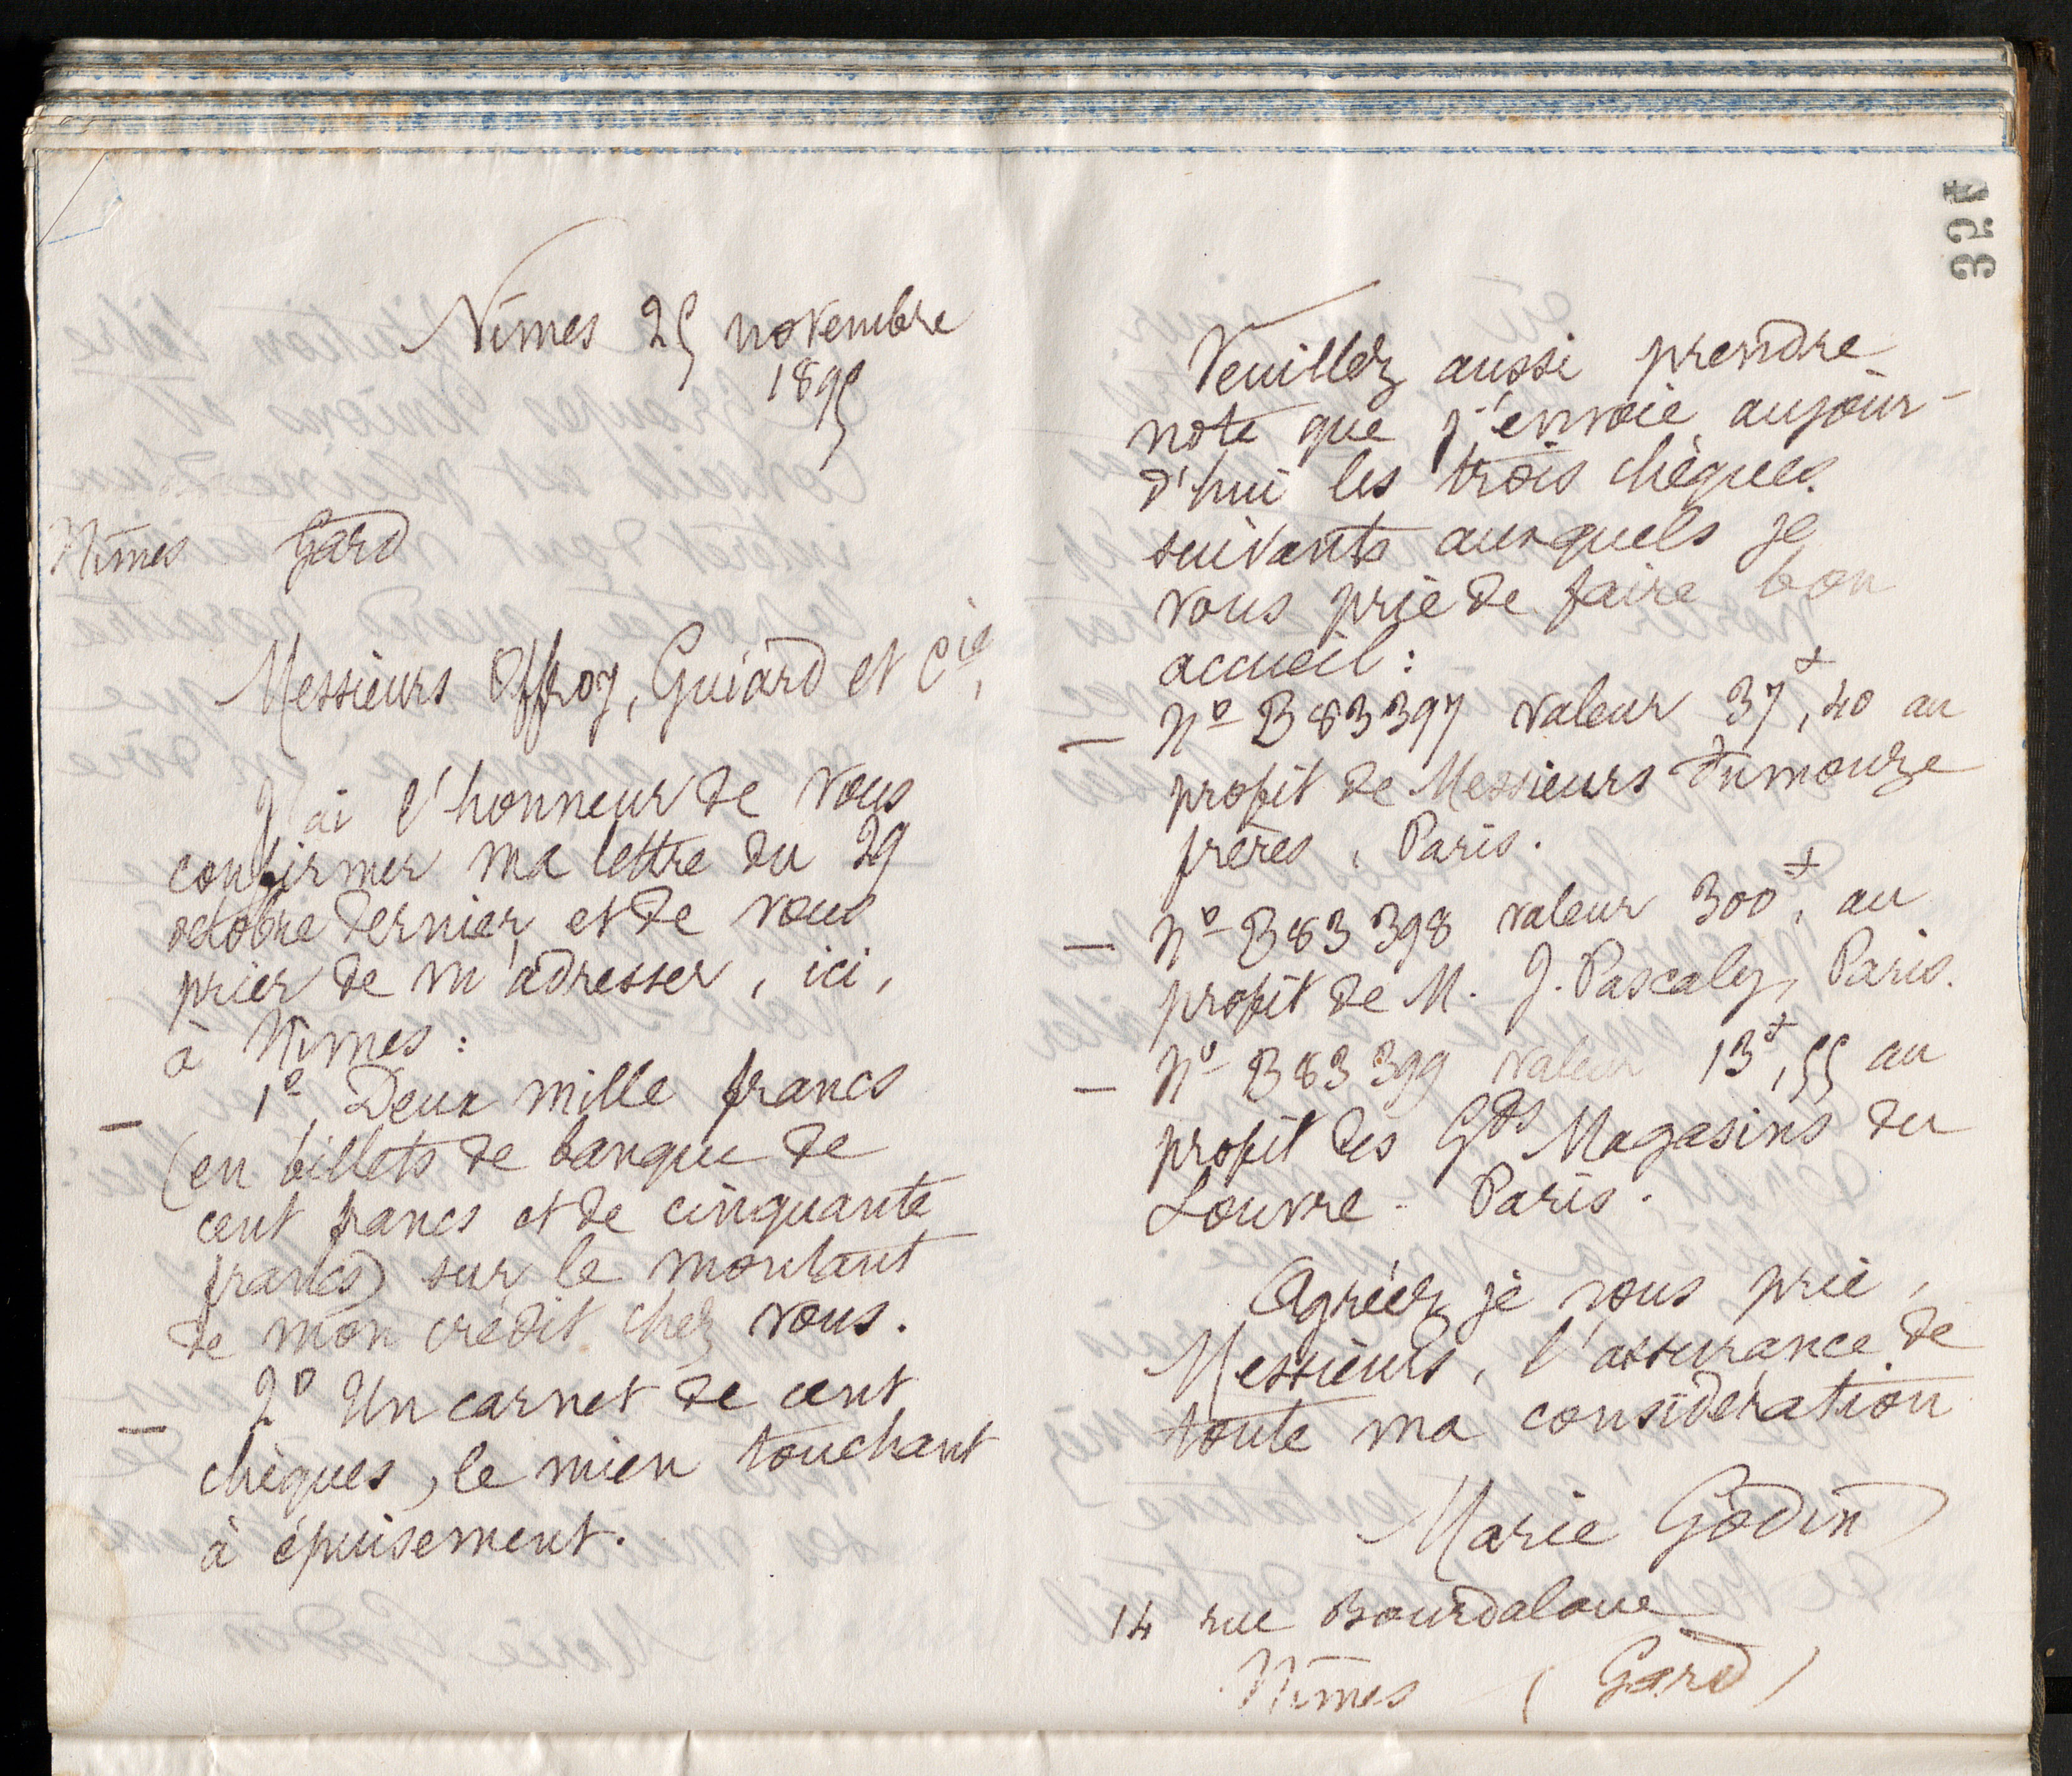 Nîmes 25 novembre
1895
Nîmes Gard
Messieurs Offroy, Guiard et Cie,
J'ai l'honneur de vous
confirmer ma lettre du 29
octobre dernier et de vous
prier de m'adresser, ici,
à Nîmes :
— 1° Deux mille francs
(en billets de banque de
cent francs et de cinquante
francs) sur le montant
de mon crédit chez vous.
— 2° Un carnet de cent
chèques, le mien touchant
à épuisement.
324
Veuillez aussi prendre
note que j'envoie aujour-
d'hui les trois chèques
suivants auxquels je
vous prie de faire bon
accueil :
— N° B83397 valeur 37f,40 au
profit de Messieurs Fumouze
frères, Paris.
— N° B83398 valeur 300f, au
profit de M. J. Pascaly, Paris.
— N° B83399 valeur 13f,55 au
profit des Gds Magasins du
Louvre - Paris.
Agréez je vous prie,
Messieurs, l'assurance de
toute ma considération
Marie Godin
14 rue Bourdaloue
Nîmes (Gard)